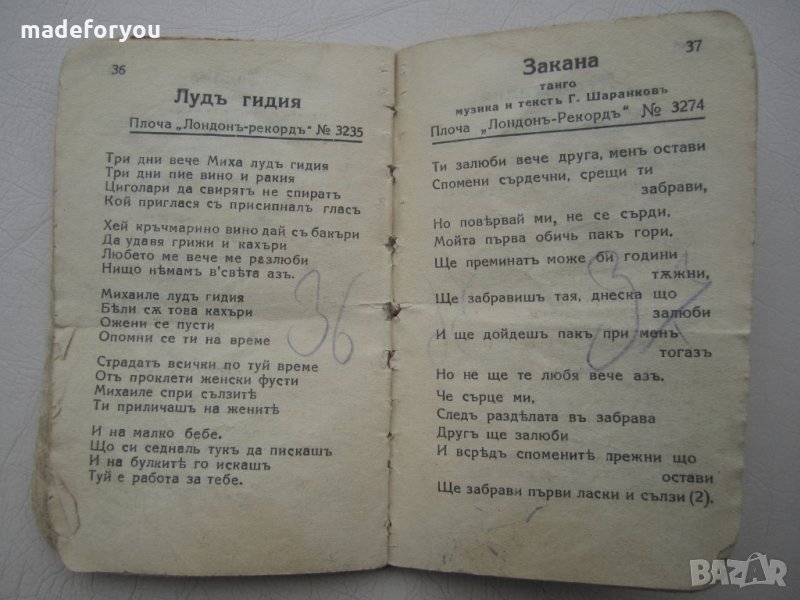 madeforyou
36
Лудъ гидия
Плоча „Лондонъ-рекордъ" № 3235
Три дни вече Миха лудъ гидия
Три дни пие вино и ракия
Циголари да свирятъ не спиратъ
Кой приглася съ присипналъ гласъ
Хей кръчмарино вино дай съ бакъри
Да удавя грижи и кахъри
Любето ме вече ме разлюби
Нищо нѣмамъ в'свѣта азъ.
Михаиле лудъ гидия
Бѣли сѫ това кахъри
Ожени се пусти
Опомни се ти на време
Страдатъ всички по туй време
Отъ проклети женски фусти
Михаиле спри сълзитѣ
Ти приличашъ на женитѣ
И на малко бебе.
Що си седналъ тукъ да пискашъ
И на булкитѣ го искашъ
Туй е работа за тебе.
36
37
Закана
танго
музика и текстъ Г. Шаранковъ
Плоча „Лондонъ-Рекордъ" № 3274
Ти залюби вече друга, менъ остави
Спомени сърдечни, срещи ти
забрави,
Но повѣрвай ми, не се сърди,
Мойта първа обичь пакъ гори.
Ще преминатъ може би години
тѫжни,
Ще забравишъ тая, днеска що
залюби
И ще дойдешъ пакъ при менъ
тогазъ
Но не ще те любя вече азъ.
Че сърце ми,
Следъ раздѣлата въ забрава
Другъ ще залюби
И всрѣдъ споменитѣ прежни що
остави
Ще забрави първи ласки и сълзи (2).
37
BAZAR